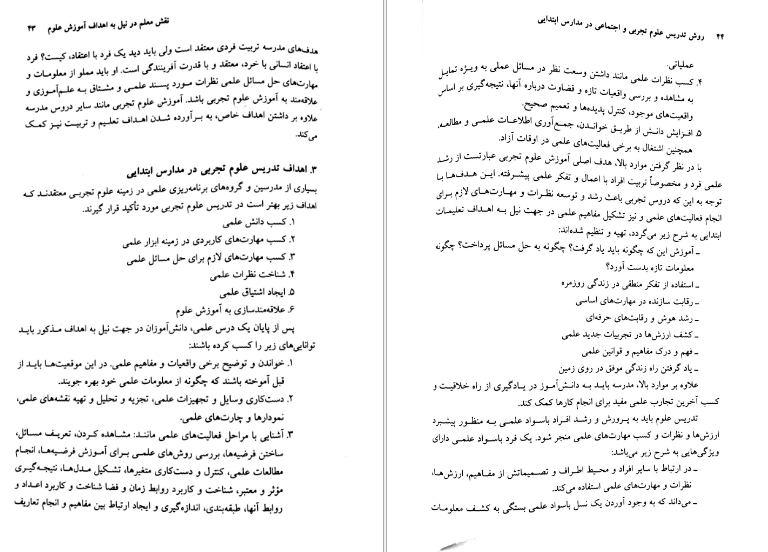 نقش معلم در نیل به اهداف آموزش علوم ۴۳
هدف‌های مدرسه تربیت فردی معتقد است ولی باید دید یک فرد با اعتقاد، کیست؟ فرد
با اعتقاد انسانی با خرد، معتقد و با قدرت آفرینندگی است. او باید مملو از معلومات و
مهارت‌های حل مسائل علمی نظرات مورد پسند علمی و مشتاق به علم‌آموزی و
علاقه‌مند به آموزش علوم تجربی باشد. آموزش علوم تجربی مانند سایر دروس مدرسه
علاوه بر داشتن اهداف خاص، به برآورده شدن اهداف تعلیم و تربیت نیز کمک
می‌کند.
۳. اهداف تدریس علوم تجربی در مدارس ابتدایی
بسیاری از مدرسین و گروه‌های برنامه‌ریزی علمی در زمینه علوم تجربی معتقدند که
اهداف زیر بهتر است در تدریس علوم تجربی مورد تأکید قرار گیرند.
۱. کسب دانش علمی
۲. کسب مهارت‌های کاربردی در زمینه ابزار علمی
۳. کسب مهارت‌های لازم برای حل مسائل علمی
۴. شناخت نظرات علمی
۵. ایجاد اشتیاق علمی
۶. علاقه‌مندسازی به آموزش علوم
پس از پایان یک درس علمی، دانش‌آموزان در جهت نیل به اهداف مذکور باید
توانایی‌های زیر را کسب کرده باشند:
۱. خواندن و توضیح برخی واقعیات و مفاهیم علمی. در این موقعیت‌ها باید از
قبل آموخته باشند که چگونه از معلومات علمی خود بهره جویند.
۲. دست‌کاری وسایل و تجهیزات علمی، تجزیه و تحلیل و تهیه نقشه‌های علمی،
نمودارها و چارت‌های علمی.
۳. آشنایی با مراحل فعالیت‌های علمی مانند: مشاهده کردن، تعریف مسائل،
ساختن فرضیه‌ها، بررسی روش‌های علمی برای آموزش فرضیه‌ها، انجام
مطالعات علمی، کنترل و دست‌کاری متغیرها، تشکیل مدل‌ها، نتیجه‌گیری
مؤثر و معتبر، شناخت و کاربرد روابط زمان و فضا شناخت و کاربرد اعداد و
روابط آنها، طبقه‌بندی، اندازه‌گیری و ایجاد ارتباط بین مفاهیم و انجام تعاریف
۴۴ روش تدریس علوم تجربی و اجتماعی در مدارس ابتدایی
عملیاتی.
۴. کسب نظرات علمی مانند داشتن وسعت نظر در مسائل عملی به ویژه تمایل
به مشاهده و بررسی واقعیات تازه و قضاوت درباره آنها، نتیجه‌گیری بر اساس
واقعیت‌های موجود، کنترل پدیده‌ها و تعمیم صحیح.
۵. افزایش دانش از طریق خواندن، جمع‌آوری اطلاعات علمی و مطالعه.
همچنین اشتغال به برخی فعالیت‌های علمی در اوقات آزاد.
با در نظر گرفتن موارد بالا، هدف اصلی آموزش علوم تجربی عبارتست از رشد
علمی فرد و مخصوصاً تربیت افراد با اعمال و تفکر علمی پیشرفته. این هدف‌ها با
توجه به این که دروس تجربی باعث رشد و توسعه نظرات و مهارت‌های لازم برای
انجام فعالیت‌های علمی و نیز تشکیل مفاهیم علمی در جهت نیل به اهداف تعلیمات
ابتدایی به شرح زیر می‌گردد، تهیه و تنظیم شده‌اند:
ـ آموزش این که چگونه باید یاد گرفت؟ چگونه به حل مسائل پرداخت؟ چگونه
معلومات تازه بدست آورد؟
ـ استفاده از تفکر منطقی در زندگی روزمره
ـ رقابت سازنده در مهارت‌های اساسی
ـ رشد هوش و رقابت‌های حرفه‌ای
ـ کشف ارزش‌ها در تجربیات جدید علمی
ـ فهم و درک مفاهیم و قوانین علمی
ـ یاد گرفتن راه زندگی موفق در روی زمین
علاوه بر موارد بالا، مدرسه باید به دانش‌آموز در یادگیری از راه خلاقیت و
کسب آخرین تجارب علمی مفید برای انجام کارها کمک کند.
تدریس علوم باید به پرورش و رشد افراد باسواد علمی به منظور پیشبرد
ارزش‌ها و نظرات و کسب مهارت‌های علمی منجر شود. یک فرد باسواد علمی دارای
ویژگی‌هایی به شرح زیر می‌باشد:
ـ در ارتباط با سایر افراد و محیط اطراف و تصمیماتش از مفاهیم، ارزش‌ها،
نظرات و مهارت‌های علمی استفاده می‌کند.
ـ می‌داند که به وجود آوردن یک نسل باسواد علمی بستگی به کشف معلومات